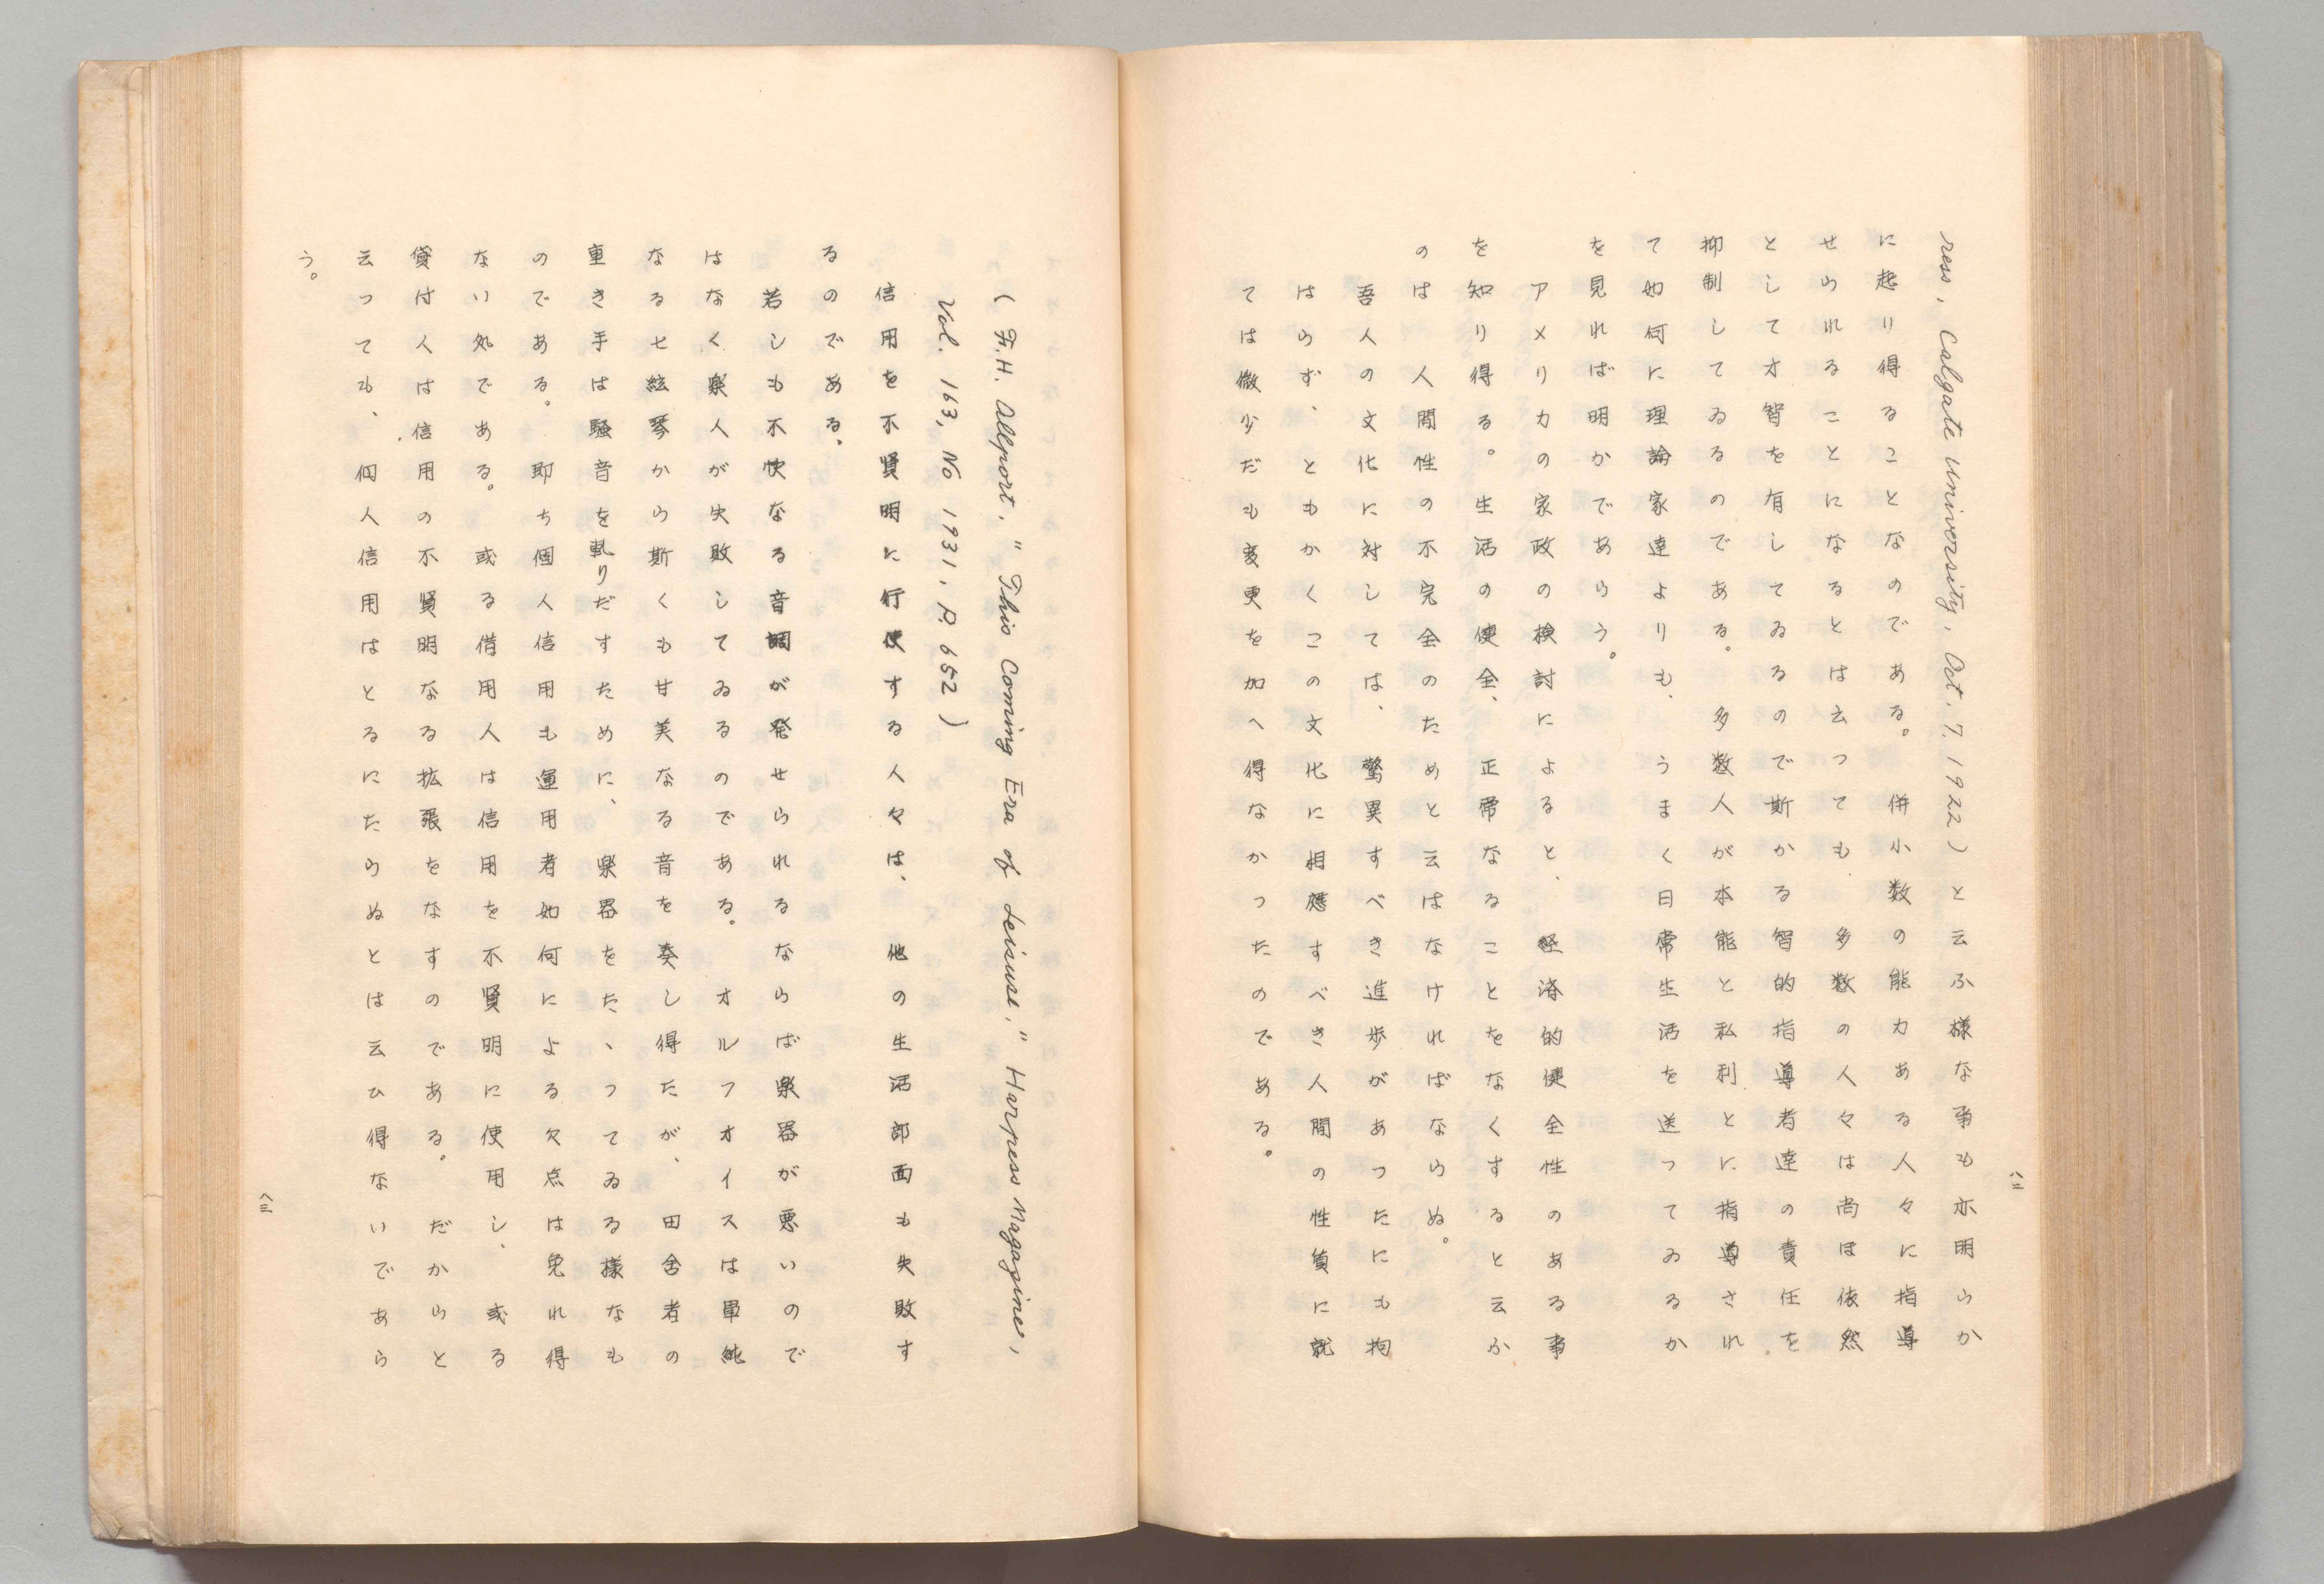 ress, Calgate University, Oct. 7. 1922）と云ふ様な事も亦明らか
に起り得ることなのである。併小数の能力ある人々に指導
せられることになるとは云つても、多数の人々は尚ほ依然
として才智を有してゐるので斯かる智的指導者達の責任を
抑制してゐるのである。多数人が本能と私利とに指導され
て如何に理論家達よりも、うまく日常生活を送つてゐるか
を見れば明かであらう。
アメリカの家政の検討によると、経済的健全性のある事
を知り得る。生活の健全、正常なることをなくすると云ふ
のは人間性の不完全のためと云はなければならぬ。
吾人の文化に対しては、驚異すべき進歩があつたにも拘
はらず、ともかくこの文化に相應すべき人間の性質に就
ては微少だも変更を加へ得なかつたのである。
八二
（F.H. Allport, "This Coming Era of Leisure," Harpess Magazine,
Vol. 163, No 1931, P. 652）
信用を不賢明に行使する人々は、他の生活部面も失敗す
るのである。
若しも不快なる音調が発せられるならば楽器が悪いので
はなく楽人が失敗してゐるのである。オルフオイスは単純
なる七絃琴から斯くも甘美なる音を奏し得たが、田舎者の
重き手は騒音を軋りだすために、楽器をたゝつてゐる様なも
のである。即ち個人信用も運用者如何による欠点は免れ得
ない処である。或る借用人は信用を不賢明に使用し、或る
貸付人は信用の不賢明なる拡張をなすのである。だからと
云つても、個人信用はとるにたらぬとは云ひ得ないであら
う。
八三